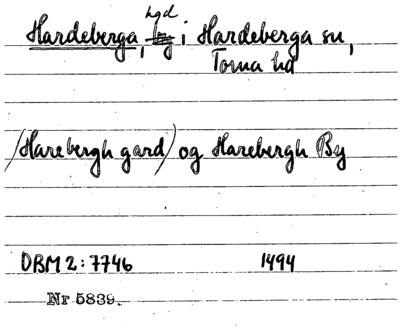 hgd
Hardeberga, by i Hardeberga sn,
Torna hd
/Harebergh gard/ og Harebergh By
DBM 2:7746 1494
Nr 5839.